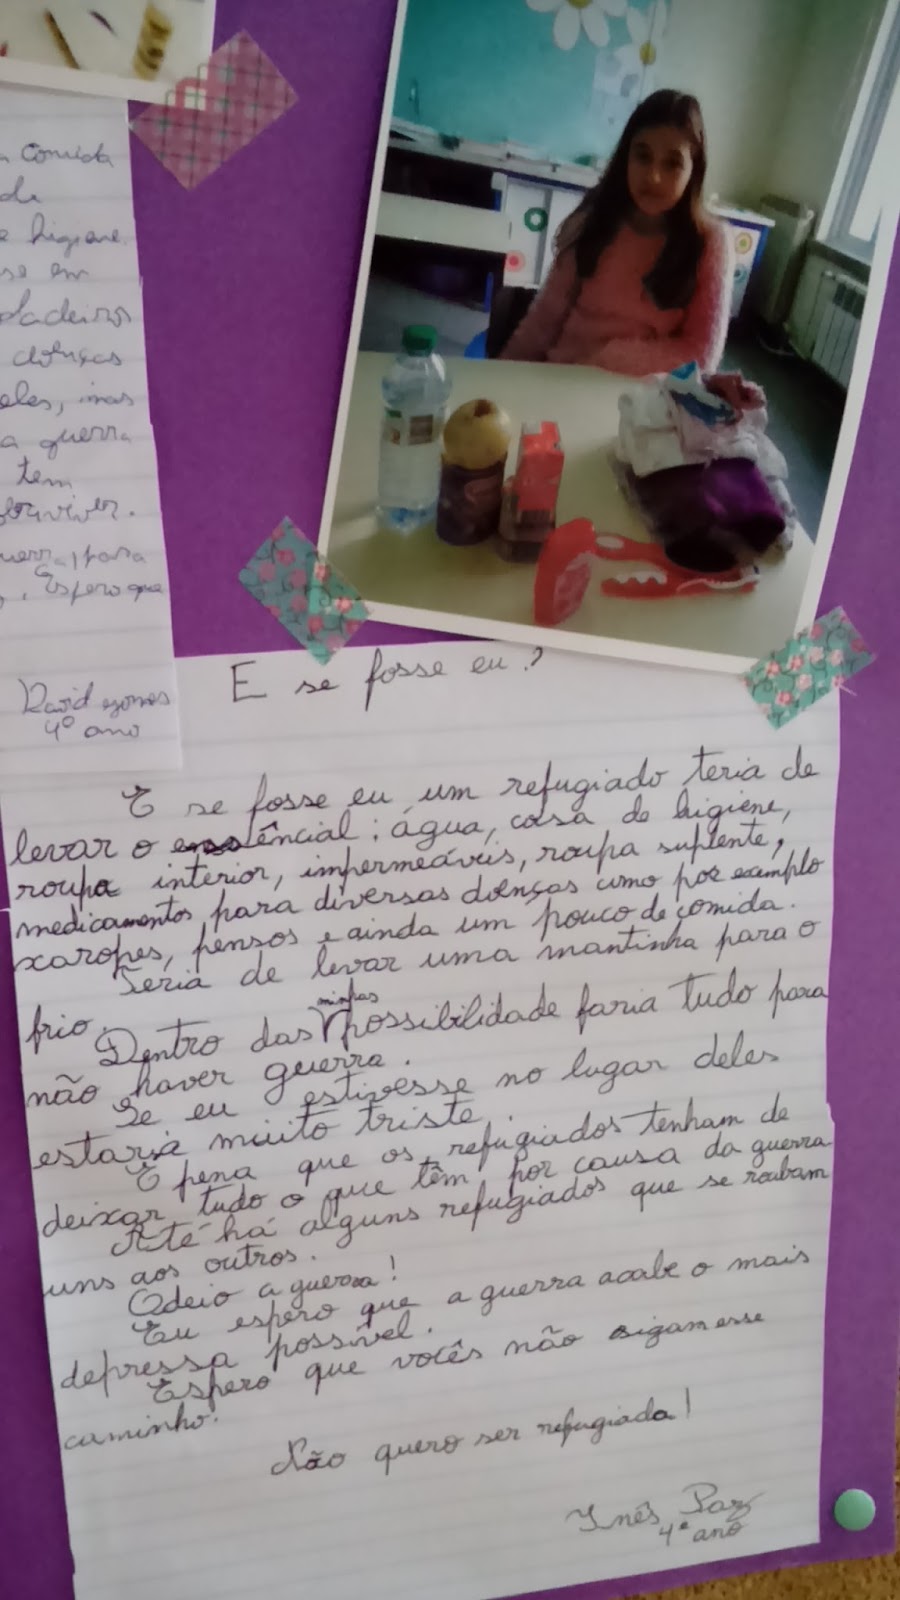 Comida
de
e higiene.
se em
doenças
eles, mas
a guerra
tem
sobreviver.
guerra, para
. Espero que
David Gomes
4º ano
E se fosse eu?
E se fosse eu um refugiado teria de
levar o essêncial: água, coisa de higiene,
roupa interior, impermeávis, roupa suplente,
medicamentos para diversas doenças como por examplo
xaropes, pensos e ainda um pouco de comida.
Teria de levar uma mantinha para o
frio.
Dentro das minhas possibilidade faria tudo para
não haver guerra.
Se eu estivesse no lugar deles
estaria muito triste.
É pena que os refugiados tenham de
deixar tudo o que têm por causa da guerra
Até há alguns refugiados que se roubam
uns aos outros.
Odeio a guerra!
Eu espero que a guerra acabe o mais
depressa possível.
Espero que vocês não sigam esse
caminho.
Não quero ser refugiada!
Inês Paz
4º ano